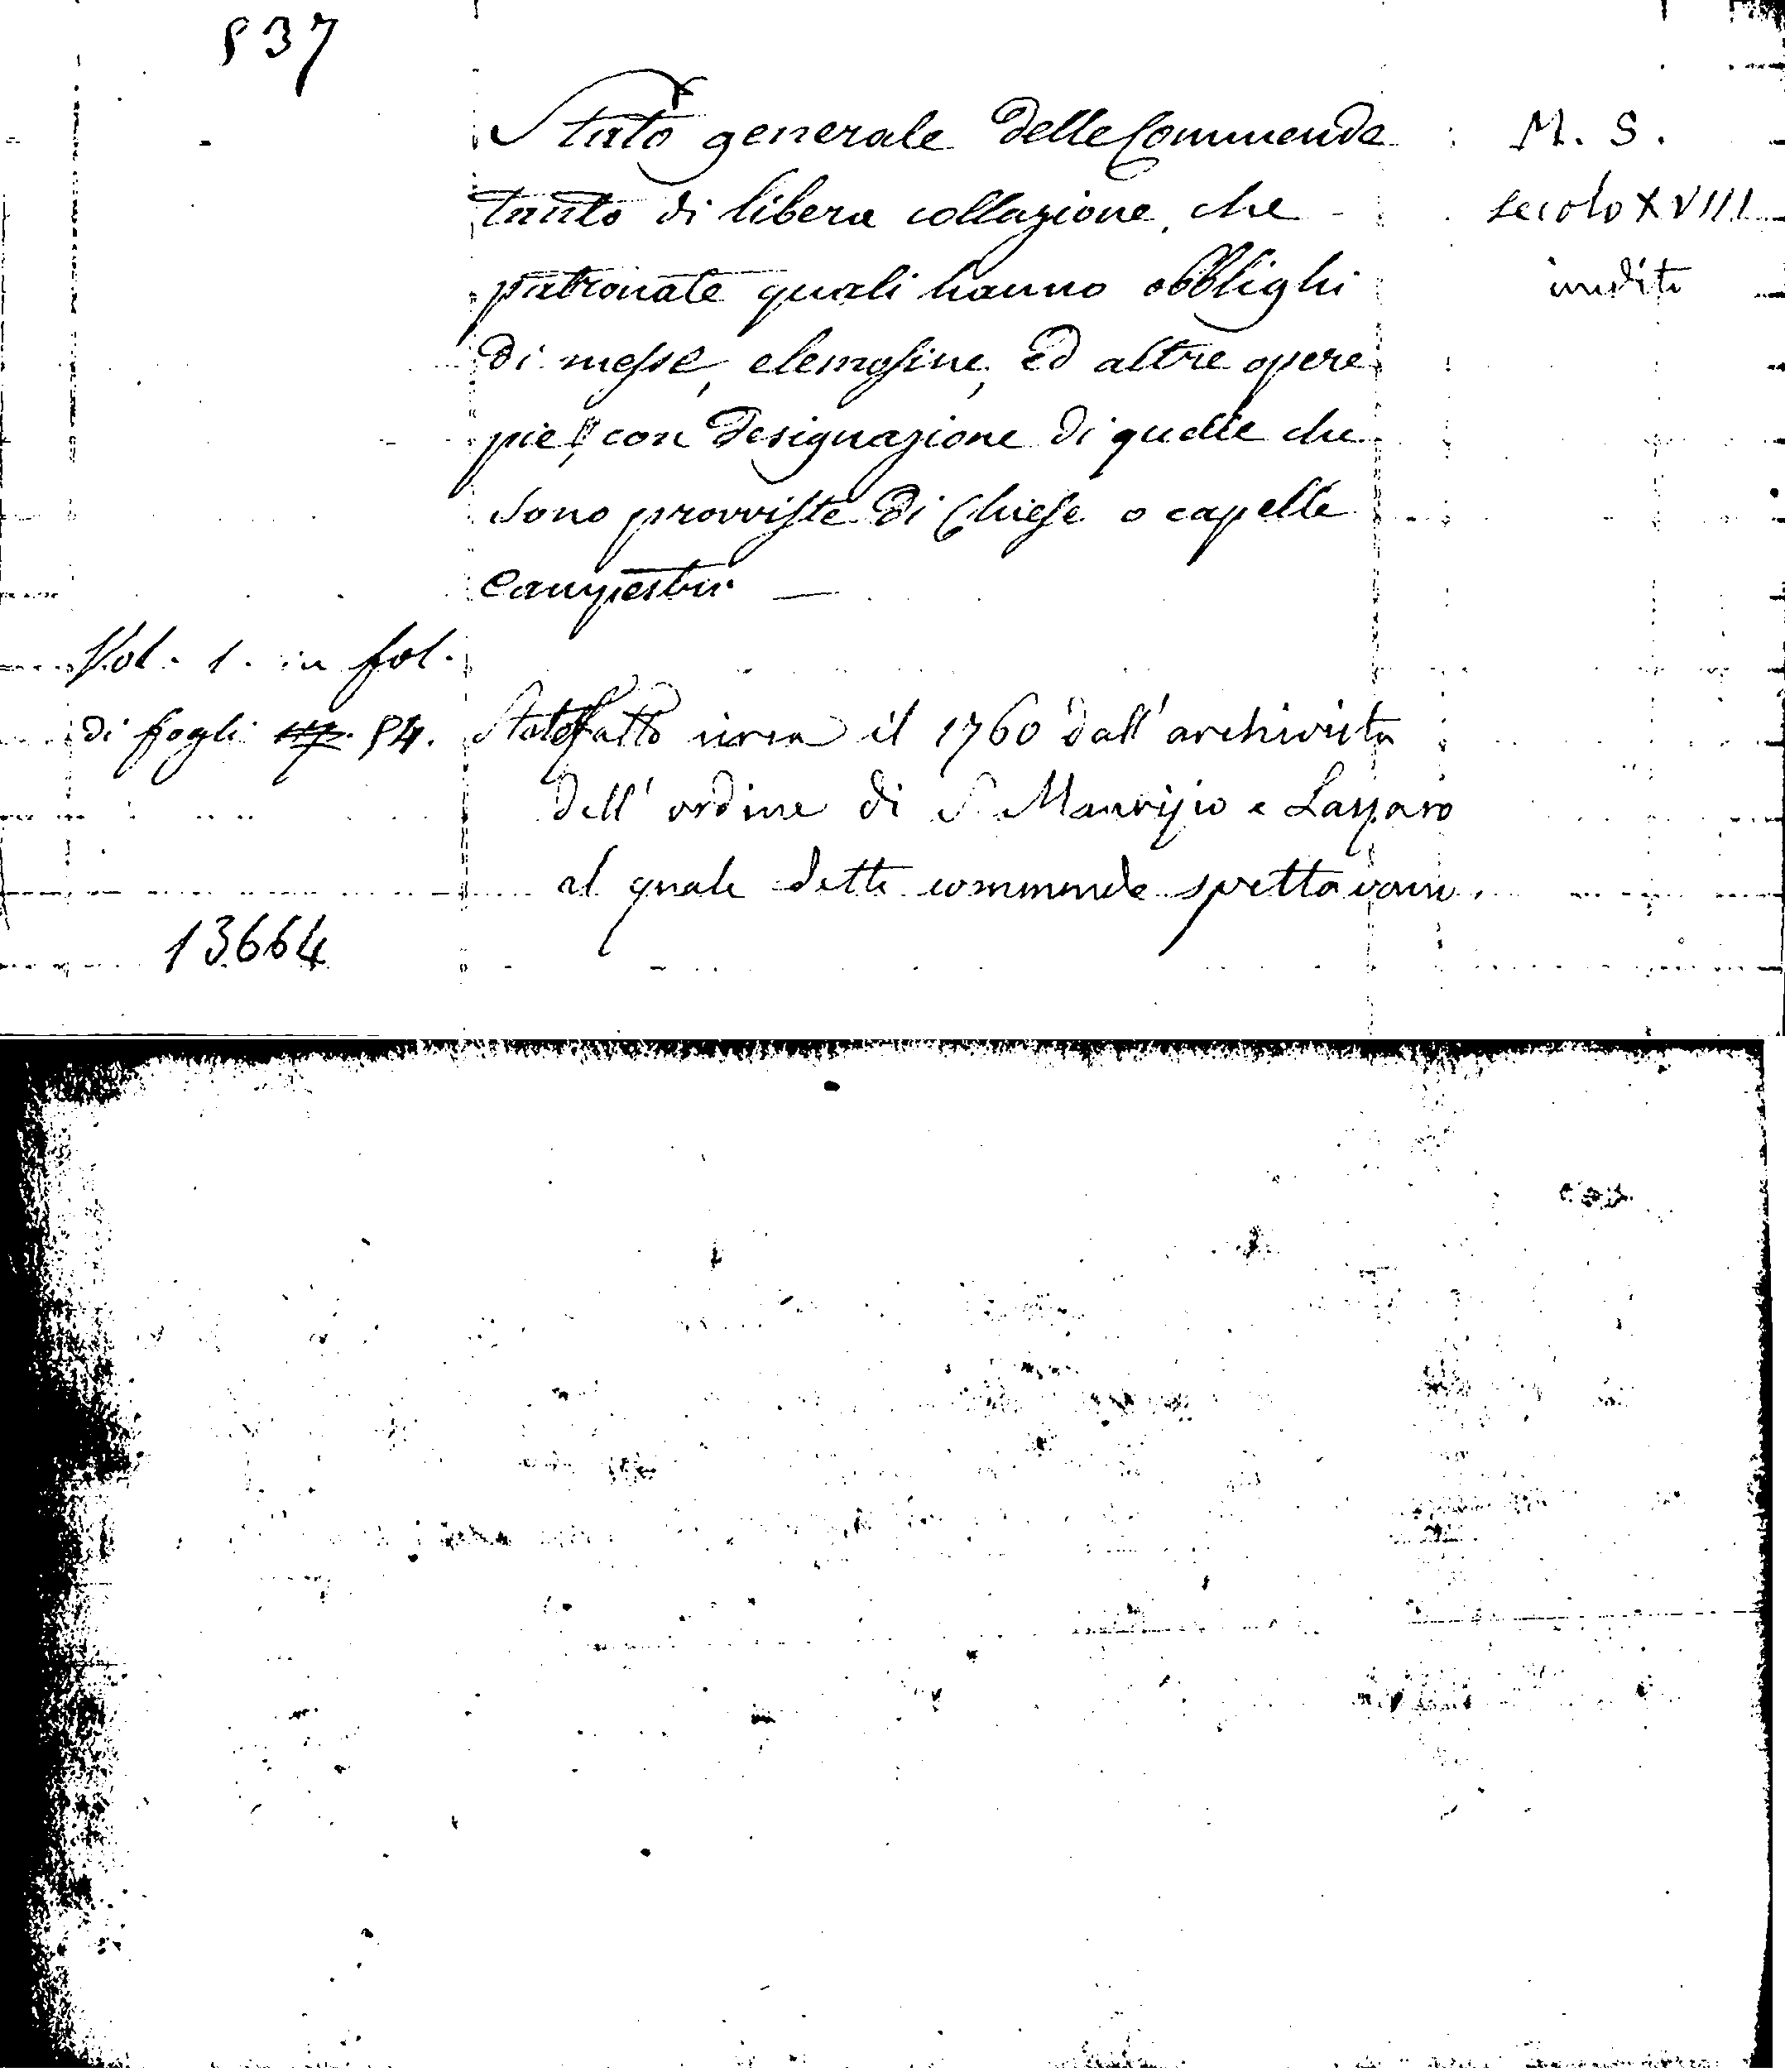 837
Stato generale delle Commende
tanto di libera collazione, che
patronate quali hanno obblighi
di messe, elemosine, ed altre opere
pie, con designazione di quelle che
sono provviste di Chiese o capelle
campestri —
M. S.
secolo XVIII
inedito
Vol. 1. in fol.
di fogli 84.
Stato fatto circa il 1760 dall'archivista
dell'ordine di S. Maurizio e Lazzaro
al quale dette commende spettavano.
13664